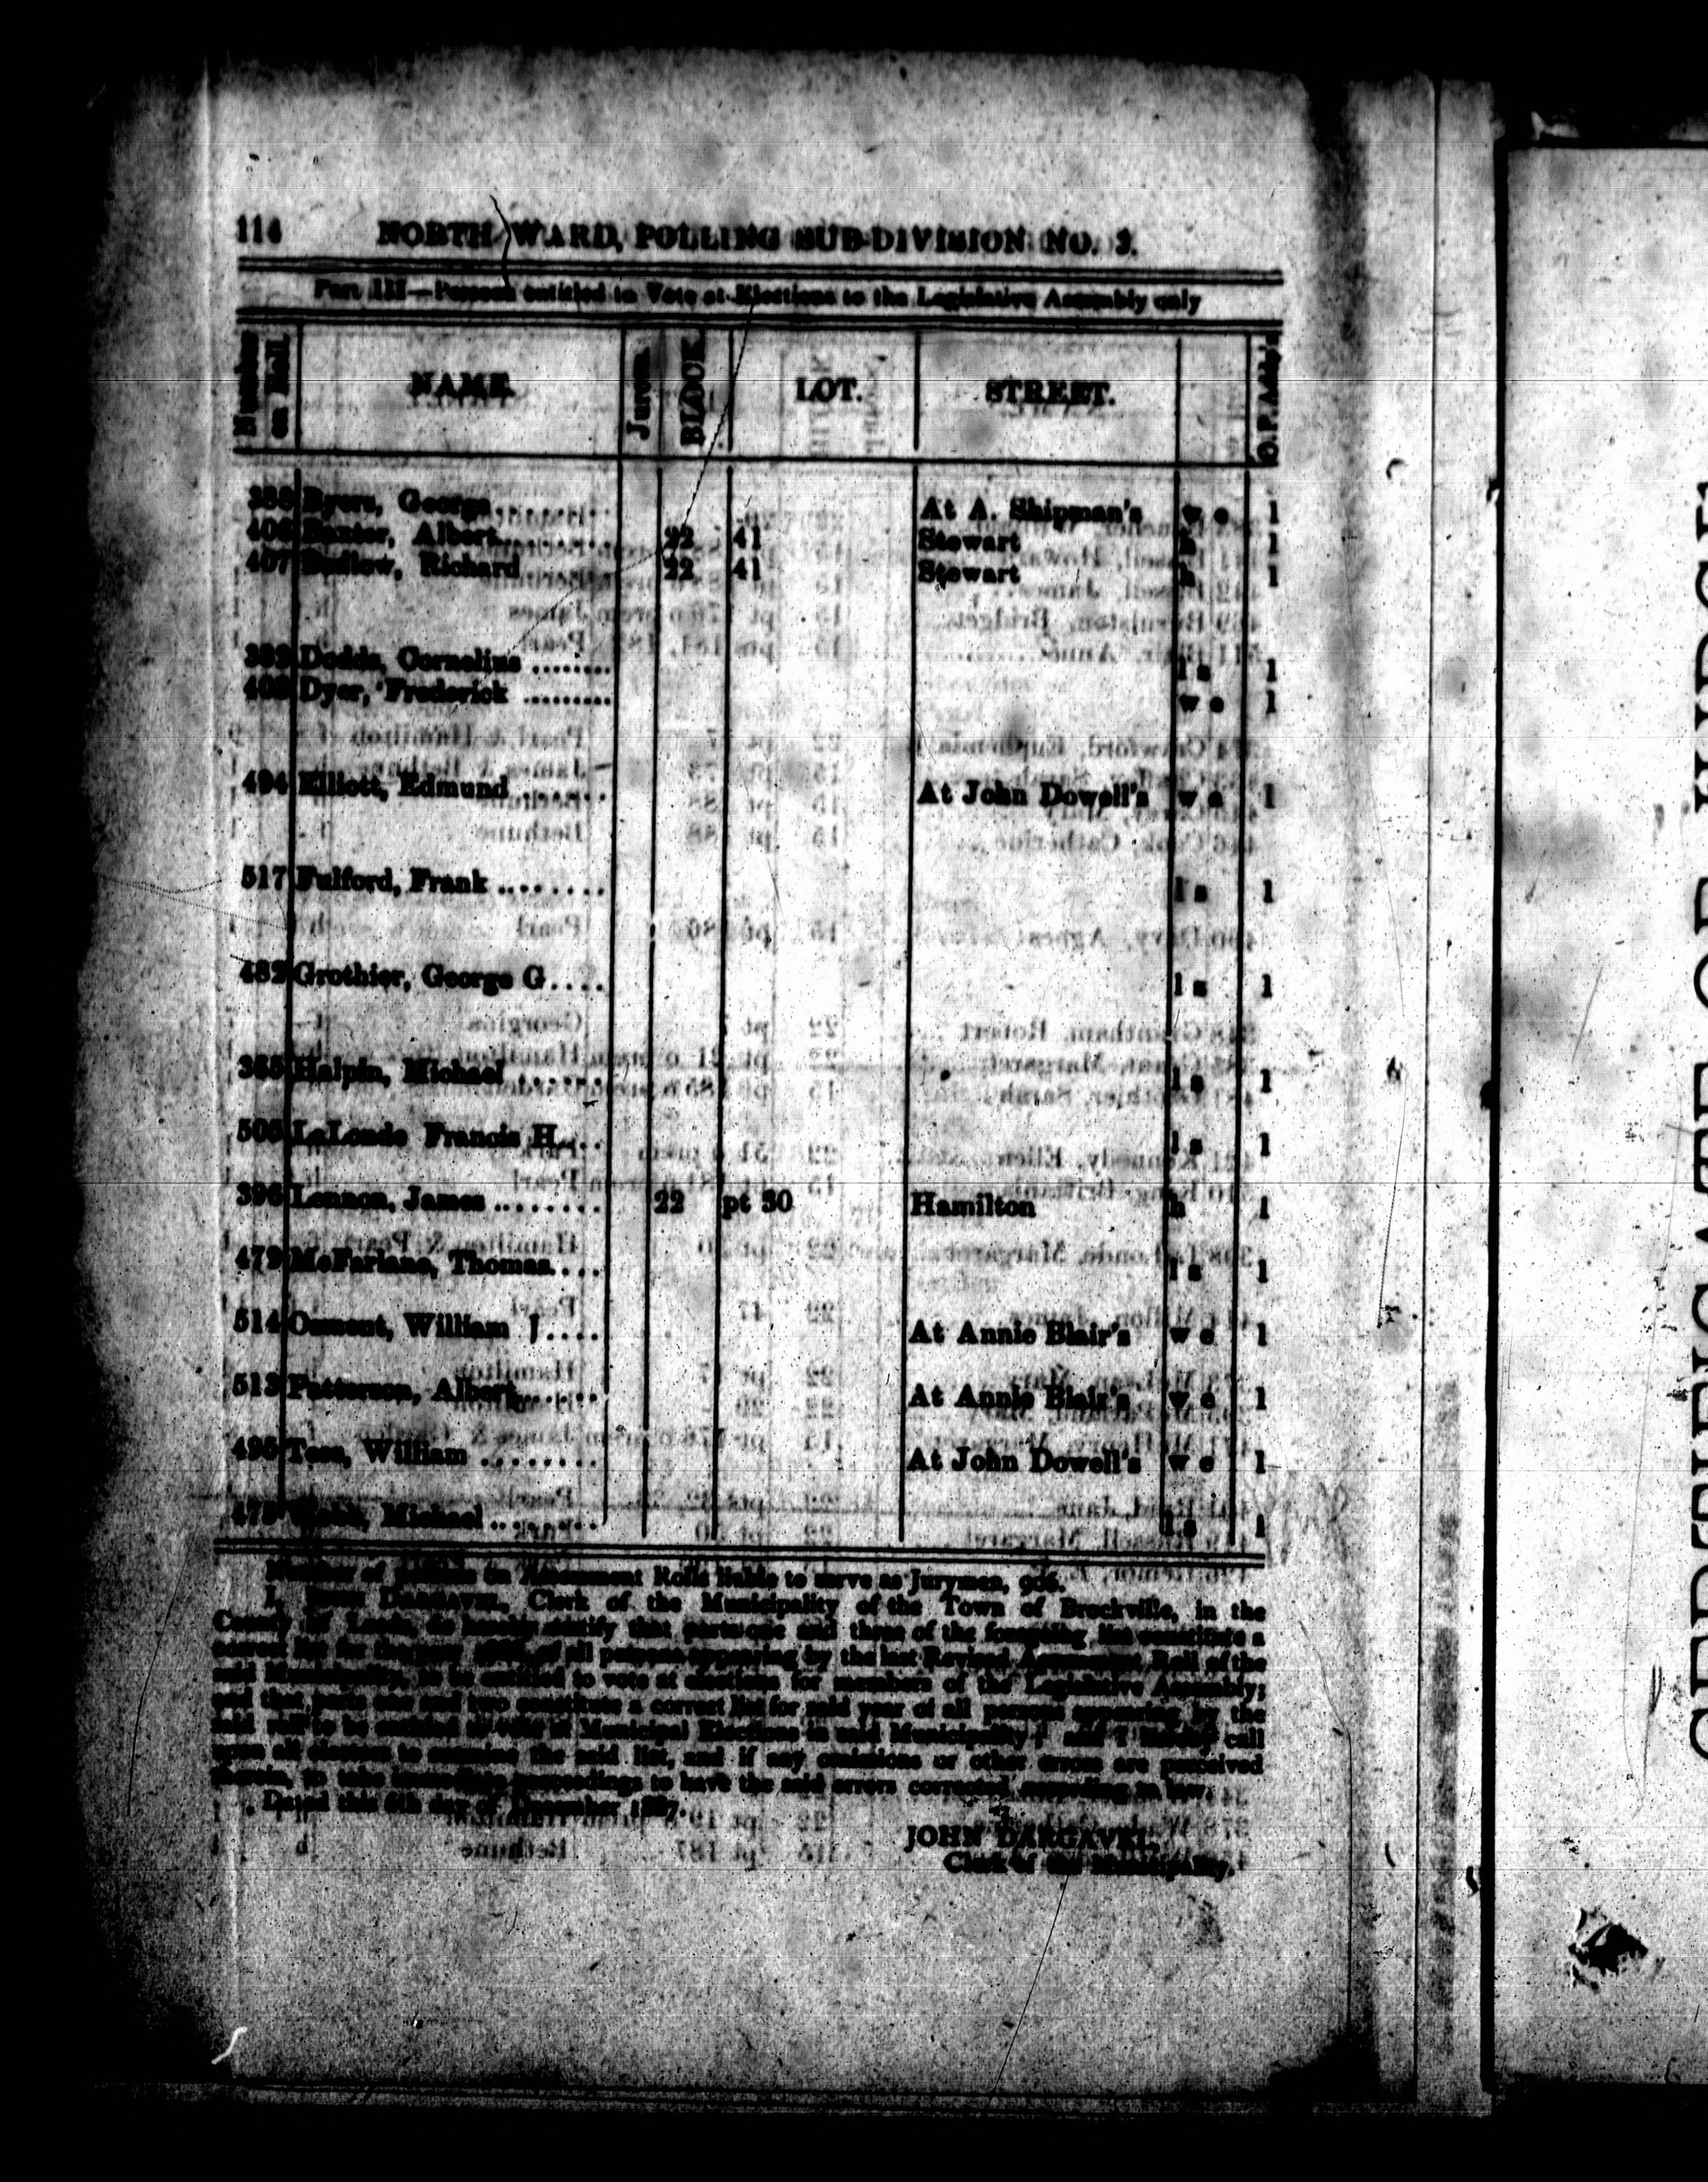 114 NORTH WARD, POLLING SUB-DIVISION NO. 3.
Part III—Persons entitled to Vote at Elections to the Legislative Assembly only
Number on Roll. NAME. Jurors. BLOCK. LOT. STREET. O.P. Add's
Byers, George........ At A. Shipman's w e 1
406 Baxter, Albert......... 22 41 Stewart h 1
407 Richard 22 41 Stewart h 1
Dodds, Cornelius ........ l s 1
Dyer, Frederick ......... w e 1
494 Elliott, Edmund ........ At John Dowell's w e 1
517 Fulford, Frank ........ l s 1
482 Grothier, George G.... l s 1
365 Halpin, Michael ....... l s 1
505 LaLonde Francis H.... l s 1
396 Lennon, James ........ 22 pt 30 Hamilton h 1
479 McFarlane, Thomas.... l s 1
514 Osment, William J.... At Annie Blair's w e 1
513 Patterson, Albert....... At Annie Blair's w e 1
495 Tees, William ........ At John Dowell's w e 1
Michael ......... l s 1
Number of persons on Assessment Rolls liable to serve as Jurymen, 906.
I, JOHN DARGAVEL, Clerk of the Municipality of the Town of Brockville, in the
County of Leeds, do hereby certify that parts one and three of the foregoing list constitute a
correct list for the year of all persons appearing by the last Revised Assessment Roll of the
said Municipality, to be entitled to vote at elections for members of the Legislative Assembly;
and that parts one and two constitute a correct list for said year of all persons appearing by the
said roll to be entitled to vote at Municipal Elections in said Municipality; and I hereby call
upon all electors to examine the said list, and if any omissions or other errors are perceived
therein, to take immediate proceedings to have the said errors corrected according to law.
Dated this 6th day of December 1887.
JOHN DARGAVEL,
Clerk of the Municipality.